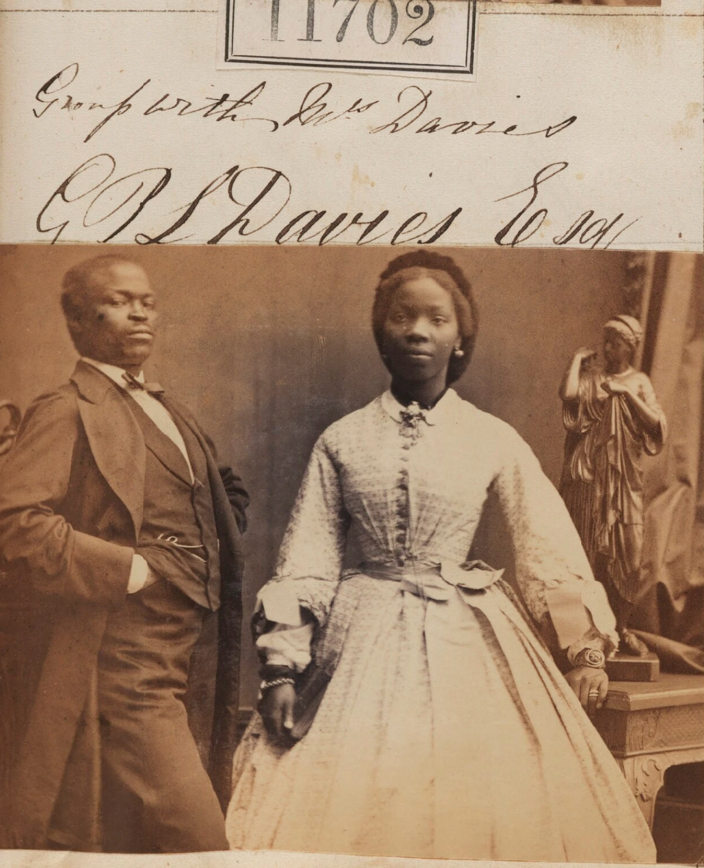 11702
Group with Mrs Davies
G P L Davies Esq